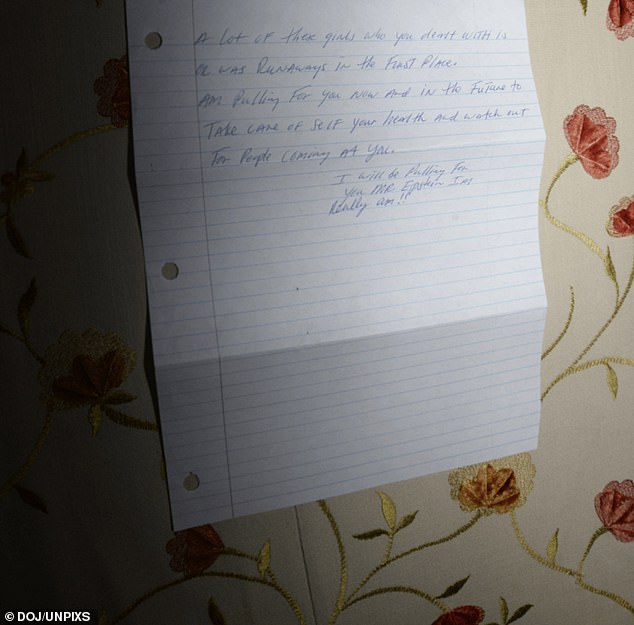 A Lot of thex girls who you dealt with is
or was Runaways in the First Place.
Am Pulling For you Now And in the Future to
Take care of Self your health And watch out
For People Coming At You.
I will be Pulling For
you MR. Epstein I'm
Really am!!
© DOJ/UNPIXS